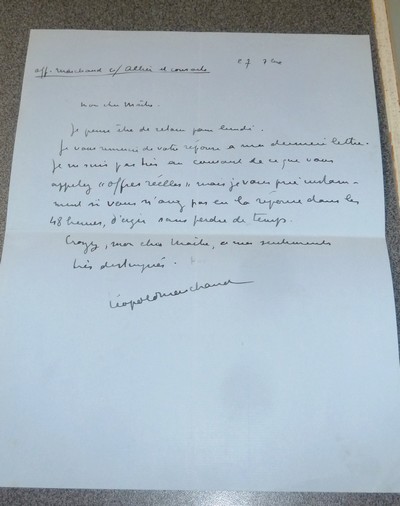 aff. Marchand c/ Allier et consorts
27 7bre
Mon cher Maître,
Je pense être de retour pour lundi.
Je vous remercie de votre réponse à ma dernière lettre.
Je ne suis pas très au courant de ce que vous
appelez "offres réelles" mais je vous prie instam-
ment si vous n'avez pas eu la réponse dans les
48 heures, d'agir sans perdre de temps.
Croyez, mon cher Maître, à mes sentiments
très distingués.
Léopold Marchand